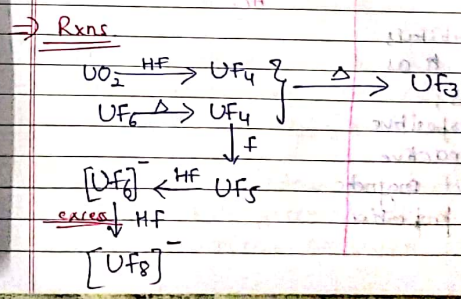 ⇒ Rxns
UO₂ —HF→ UF₄ } —Δ→ UF₃
UF₆ —Δ→ UF₄
↓ F
[UF₆]⁻ ←HF— UF₅
excess ↓ HF
[UF₈]⁻